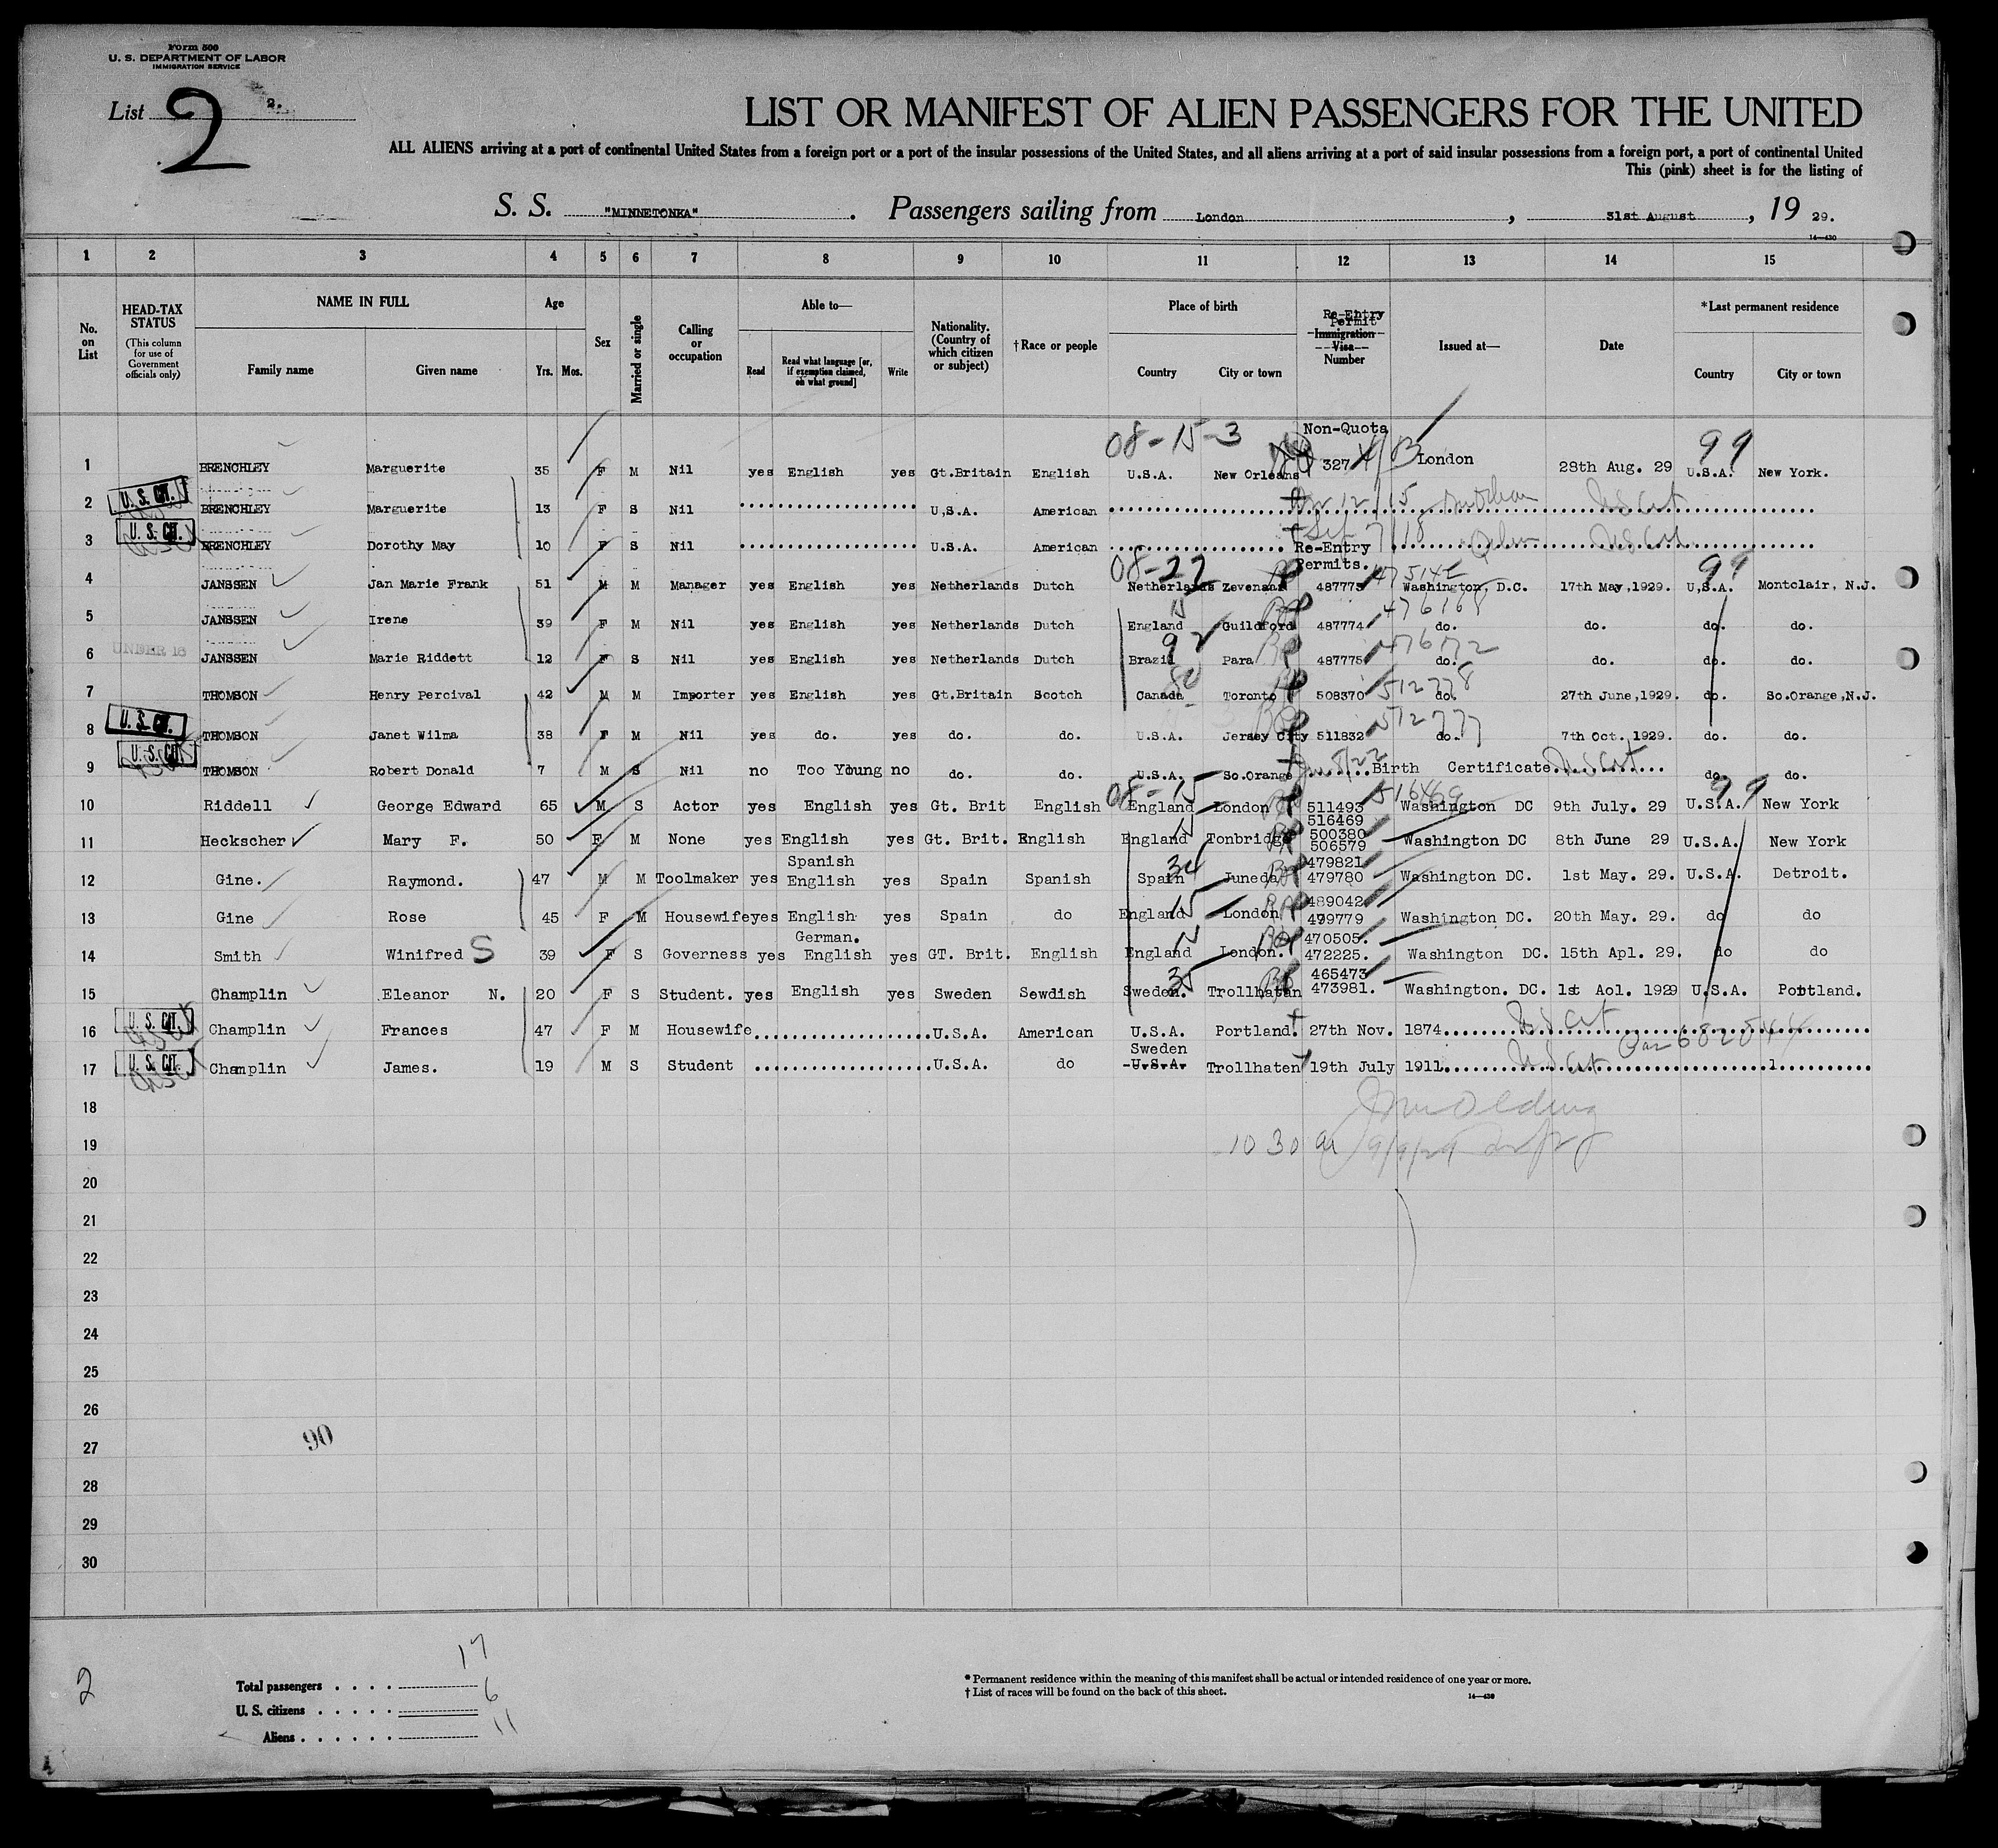 Form 500
U. S. DEPARTMENT OF LABOR
IMMIGRATION SERVICE
List 2 2.
LIST OR MANIFEST OF ALIEN PASSENGERS FOR THE UNITED
ALL ALIENS arriving at a port of continental United States from a foreign port or a port of the insular possessions of the United States, and all aliens arriving at a port of said insular possessions from a foreign port, a port of continental United
This (pink) sheet is for the listing of
S. S. "MINNETONKA". Passengers sailing from London, 31st August, 19 29.
14—430
1 2 3 4 5 6 7 8 9 10 11 12 13 14 15
No. on List
HEAD-TAX STATUS (This column for use of Government officials only)
NAME IN FULL Family name Given name
Age Yrs. Mos.
Sex
Married or single
Calling or occupation
Able to— Read Read what language [or, if exemption claimed, on what ground] Write
Nationality. (Country of which citizen or subject)
†Race or people
Place of birth Country City or town
Re-Entry Permit Immigration Visa Number
Issued at—
Date
*Last permanent residence Country City or town
08-15-3 Non-Quota 99
1 BRENCHLEY Marguerite 35 F M Nil yes English yes Gt.Britain English U.S.A. New Orleans 327 London 28th Aug. 29 U.S.A. New York.
2 U. S. CIT. BRENCHLEY Marguerite 13 F S Nil U.S.A. American 12/15 US Cit
3 U. S. CIT. BRENCHLEY Dorothy May 10 F S Nil U.S.A. American Sep 7/18 US Cit
Re-Entry Permits.
08-22 99
4 JANSSEN Jan Marie Frank 51 M M Manager yes English yes Netherlands Dutch Netherlands Zevenaar 487773 Washington, D.C. 17th May,1929. U.S.A. Montclair, N.J.
5 JANSSEN Irene 39 F M Nil yes English yes Netherlands Dutch England 15 Guildford 487774 476168 do. do. do. do.
6 UNDER 16 JANSSEN Marie Riddett 12 F S Nil yes English yes Netherlands Dutch Brazil 92 Para 487775 476172 do. do. do. do.
7 THOMSON Henry Percival 42 M M Importer yes English yes Gt.Britain Scotch Canada 80 Toronto 508370 512778 do. 27th June,1929. do. So.Orange,N.J.
8 U. S. CIT. THOMSON Janet Wilma 38 F M Nil yes do. yes do. do. U.S.A. Jersey City 511832 512777 do. 7th Oct. 1929. do. do.
9 U. S. CIT. THOMSON Robert Donald 7 M S Nil no Too Young no do. do. U.S.A. So.Orange Birth Certificate US Cit do. do.
08-15 516469 99
10 Riddell George Edward 65 M S Actor yes English yes Gt. Brit English England London 511493 516469 Washington DC 9th July. 29 U.S.A. New York
11 Heckscher Mary F. 50 F M None yes English yes Gt. Brit. English England 15 Tonbridge 500380 506579 Washington DC 8th June 29 U.S.A. New York
12 Gine. Raymond. 47 M M Toolmaker yes Spanish English yes Spain Spanish Spain 34 Juneda 479821 479780 Washington DC. 1st May. 29. U.S.A. Detroit.
13 Gine Rose 45 F M Housewife yes English yes Spain do England 15 London 489042 499779 Washington DC. 20th May. 29. do do
14 Smith Winifred S 39 F S Governess yes German. English yes GT. Brit. English England 15 London. 470505. 472225. Washington DC. 15th Apl. 29. do do
15 Champlin Eleanor N. 20 F S Student. yes English yes Sweden Sewdish Sweden. 35 Trollhatan 465473 473981. Washington. DC. 1st Aol. 1929 U.S.A. Portland.
16 U. S. CIT. Champlin Frances 47 F M Housewife U.S.A. American U.S.A. Portland. 27th Nov. 1874 US Cit
17 U. S. CIT. Champlin James. 19 M S Student U.S.A. do Sweden U.S.A. Trollhaten 19th July 1911 US Cit
18
19 10 30 am 9/9/29
20
21
22
23
24
25
26
27 90
28
29
30
2
Total passengers . . . . 17
U. S. citizens . . . . . 6
Aliens . . . . . . 11
* Permanent residence within the meaning of this manifest shall be actual or intended residence of one year or more.
† List of races will be found on the back of this sheet.
14—430